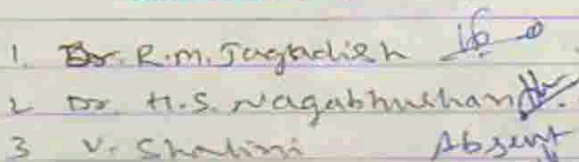 1. Dr. R.M. Jagadish
2 Dr. H.S. Nagabhushan
3 V. Shalini Absent